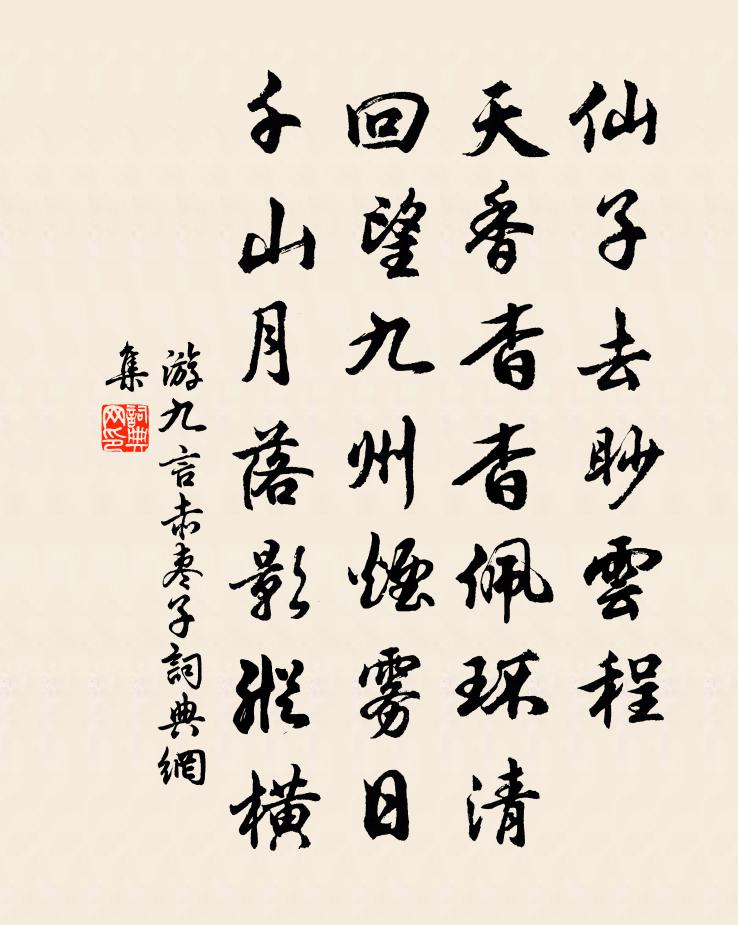 仙子去眇雲程
天香杳杳佩环清
回望九州煙雾日
千山月落影縱橫
游九言赤枣子詞典網
集
詞典网印